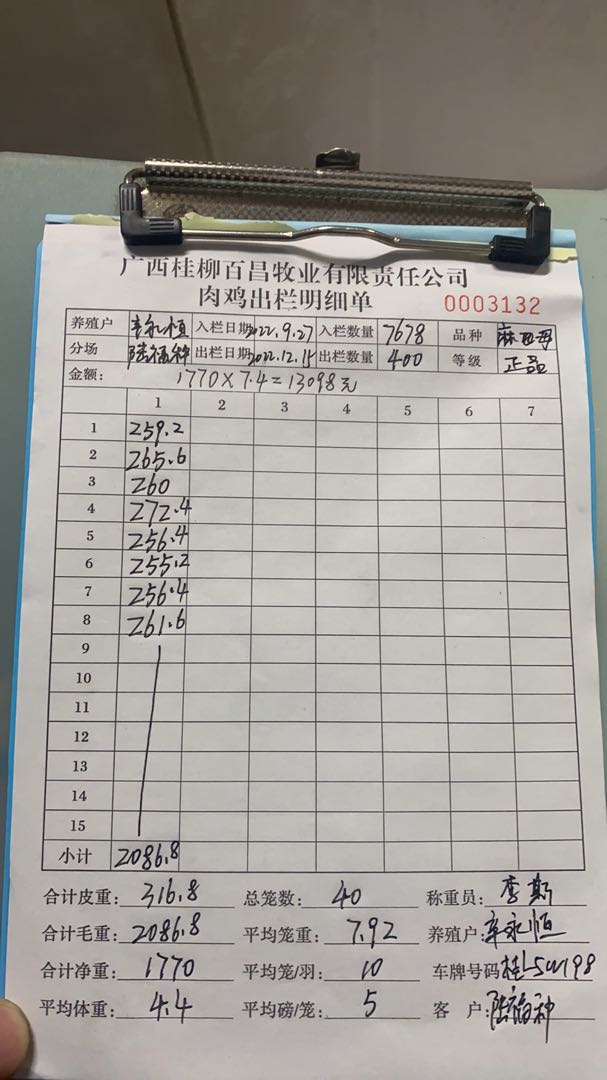 广西桂柳百昌牧业有限责任公司
肉鸡出栏明细单 0003132
养殖户 辛永恒 入栏日期 2022.9.27 入栏数量 7678 品种 麻
分场 陆福种 出栏日期 2022.12.15 出栏数量 400 等级 正品
金额: 1770×7.4=13098元
1 2 3 4 5 6 7
1 259.2
2 265.6
3 260
4 272.4
5 256.4
6 255.2
7 256.4
8 261.6
9
10
11
12
13
14
15
小计 2086.8
合计皮重: 316.8 总笼数: 40 称重员: 李斯
合计毛重: 2086.8 平均笼重: 7.92 养殖户: 辛永恒
合计净重: 1770 平均笼/羽: 10 车牌号码 桂L5W198
平均体重: 4.4 平均磅/笼: 5 客 户: 陆福种